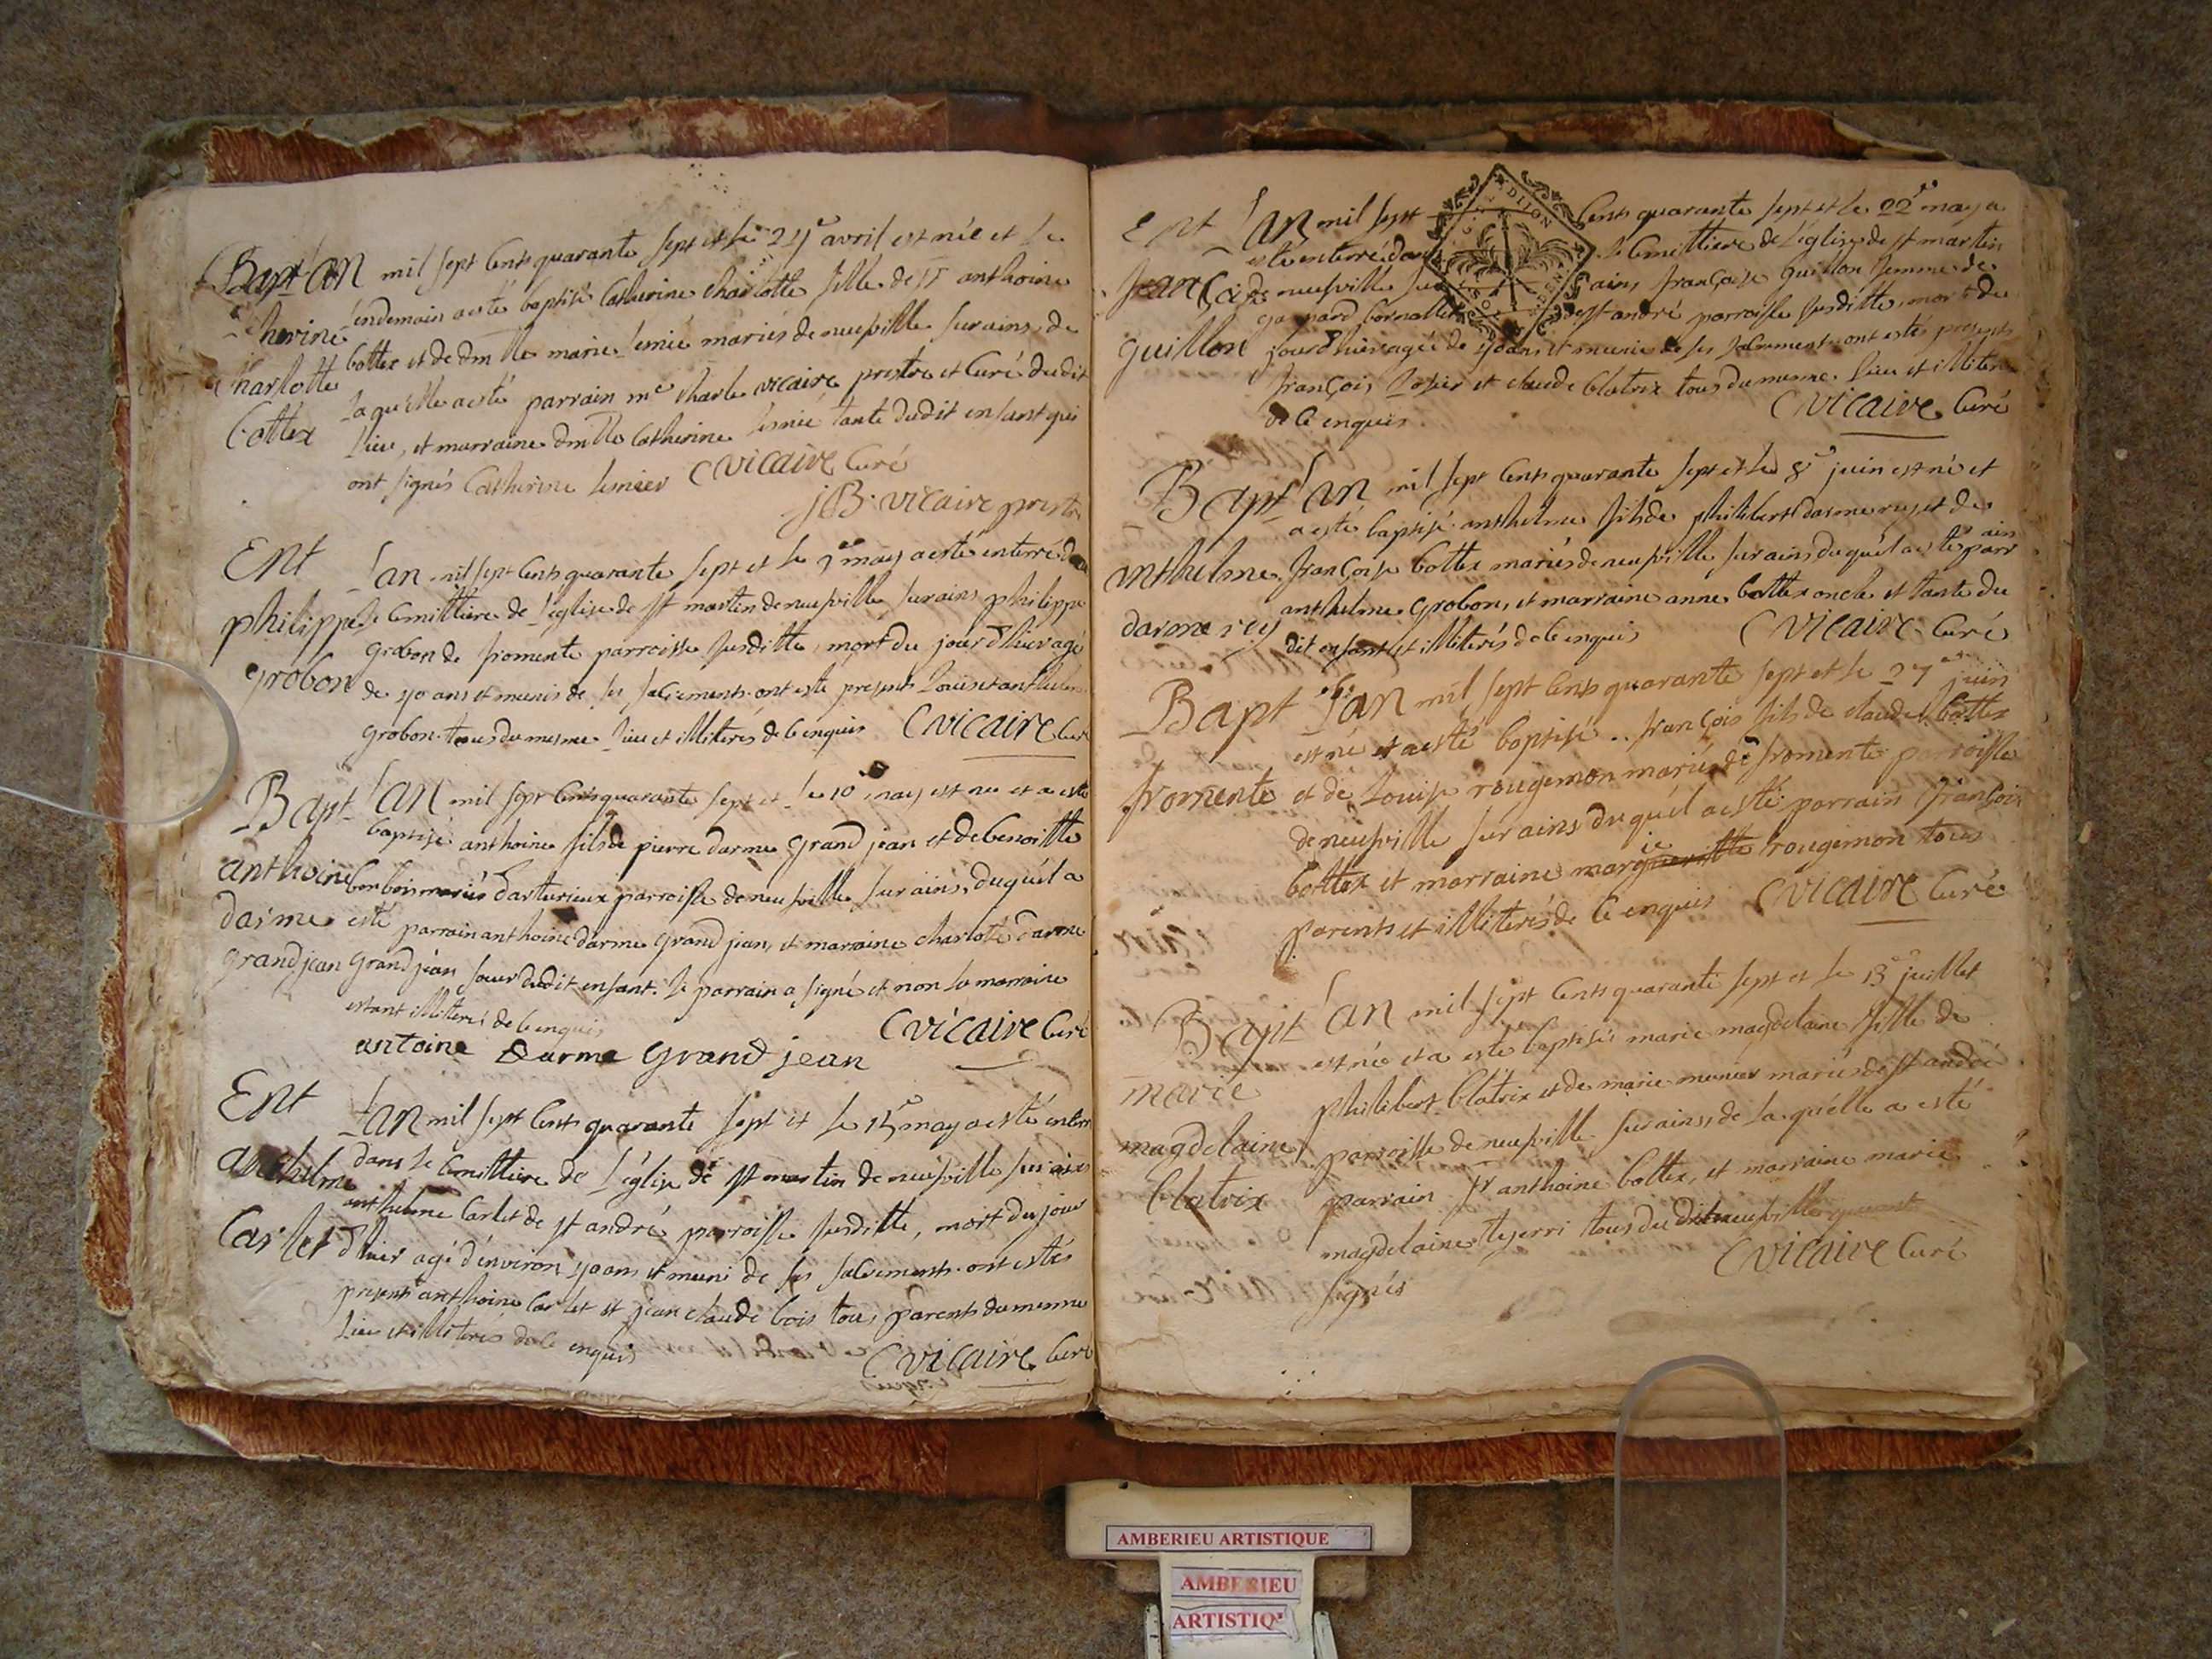 Bapt L'an mil sept cents quarante sept et le avril est née et le
lendemain a esté baptisé Catherine charlotte fille de Sr anthoine
therine
bottex et de dmlle marie mariés de neufville sur ains, de
charlotte
laquelle a esté parrain mre charle vicaire prestre et Curé dudit
bottex
lieu, et marraine dmlle Catherine tante dudit enfant qui
ont signés Catherine CVicaire Curé
JB. vicaire prestre
Ent L'an mil sept cents quarante sept et le may a esté enterré da
philippe le cemittiere de l'eglise de st martin de neufville sur ains philippe
grobon de fromente parroisse susditte, mort du jour d'hier agé
grobon
de 40 ans et munis de ses sacrements. ont esté presents Louis et anthelme
grobon tous du mesme lieu et illiterés de ce enquis CVicaire Curé
Bapt L'an mil sept cents quarante sept et le 10e may est né et a esté
baptisé anthoine fils de pierre darme grand jean et de benoitte
anthoine bonbois mariés parroisse de neufville sur ains, duquél a
darme esté parrain anthoine darme grand jean, et marraine charlote darme
grandjean grand jean soeur dudit enfant. le parrain a signé et non la marraine
estant illiteré de ce enquis CVicaire Curé
antoine Darme Grand jean
Ent L'an mil sept cents quarante sept et le 15e may a esté enterr
anthelme dans le cemittiere de l'église de st martin de neufville sur ains
anthelme Carlet de st andré parroisse susditte, mort du jour
Carlet d'hier agé d'environ 40 ans et muni de ses sacrements. ont estés
presents anthoine Carlet et jean claude bois tous parents du mesme
lieu et illiterés de ce enquis CVicaire Curé
enquis
Ent L'an mil sept cents quarante sept et le 22e may a
esté enterré dans le cemittiere de l'église de st martin
françoise de neufville sur ains, françoise guillon femme de
gaspard de st andré parroisse susditte, mort du
guillon jour d'hier agée de ans et munie de ses sacrements. ont estés presents
françois et claude blatrix tous du mesme lieu et illiterés
de ce enquis CVicaire Curé
DIJON
Bapt L'an mil sept cents quarante sept et le 8e juin est né et
a esté baptisé anthelme fils de philibert darme rey et de
anthelme françoise bottex mariés de neufville sur ains duquél a esté parrain
anthelme grobon, et marraine anne bottex oncle et tante du
darme rey dit enfant et illiterés de ce enquis CVicaire Curé
Bapt L'an mil sept cents quarante sept et le 27e juin
est né et a esté baptisé .. françois fils de claude bottex
fromente et de Louise rougemon mariés de fromente parroisse
de neufville sur ains duquél a esté parrain françois
bottex et marraine marguerittе ie rougemon tous
parents et illiterés de ce enquis CVicaire Curé
Bapt L'an mil sept cents quarante sept et le 13e juillet
est née et a esté baptisée marie magdelaine fille de
marie
philibert blatrix et de marie mariés de st andré
magdelaine parroisse de neufville sur ains, de laquélle a esté
blatrix parrain Sr anthoine bottex, et marraine marie
magdelaine tous du dit neufville
signés CVicaire Curé
AMBERIEU ARTISTIQUE
AMBERIEU
ARTISTIQ